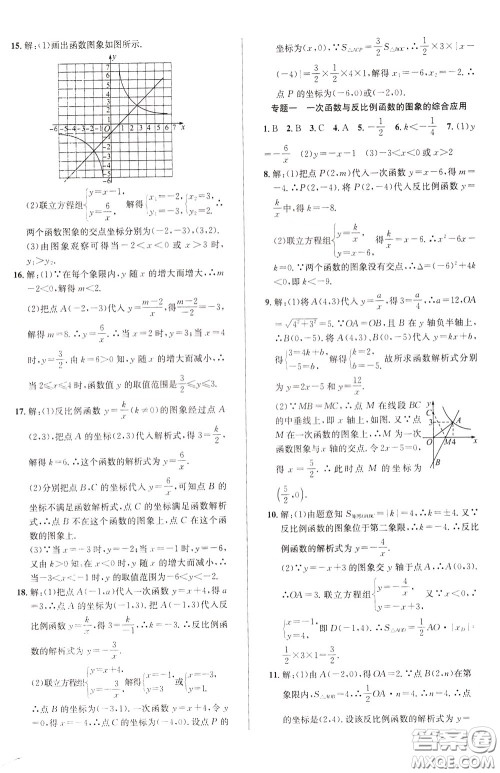 15.解:(1)画出函数图象如图所示.
(2)联立方程组{y=x-1, y=6/x  解得{x₁=-2, y₁=-3, {x₂=3, y₂=2, ∴
两个函数图象的交点坐标分别为(-2,-3),(3,2).
(3)由图象观察可得当-2<x<0或x>3时,
y₁>y₂.
16.解:(1)∵在每个象限内,y随x的增大而增大,∴m
-2<0,解得m<2.
(2)把点A(-2,-3)代入y=(m-2)/x,得-3=(m-2)/-2,
解得m=8.∴y=6/x.∴当x=4时,y=6/4=3/2;当x=2
时,y=3.由k=6>0可知,y随x的增大而减小,∴
当2≤x≤4时,函数值y的取值范围是3/2≤y≤3.
17.解:(1)反比例函数y=k/x(k≠0)的图象经过点A
(2,3),把点A(2,3)代入解析式,得3=k/2,
解得k=6.∴这个函数的解析式为y=6/x.
(2)分别把点B,C的坐标代入y=6/x,可知点B的
坐标不满足函数解析式,点C的坐标满足函数解析
式.∴点B不在这个函数的图象上,点C在这个函
数的图象上.
(3)∵当x=-3时,y=-2;当x=-1时,y=-6.又
∵由k>0知,当x<0时,y随x的增大而减小,∴
当-3<x<-1时,y的取值范围为-6<y<-2.
18.解:(1)把点A(-1,a)代入一次函数y=x+4,得a
=3.∴点A的坐标为(-1,3).把点A(-1,3)代入反
比例函数y=k/x,得k=-3.∴反比例函数
的解析式为y=-3/x.
(2)联立方程组{y=x+4, y=-3/x. 解得{x=-1, y=3, 或{x=-3, y=1.
∴点B的坐标为(-3,1).当y=x+4=0时,x=-4.
∴点C的坐标为(-4,0).设点P的
坐标为(x,0),∵S△ACP=3/2 S△BOC,∴1/2×3×|x-
(-4)|=3/2×1/2×4×1.解得x₁=-6,x₂=-2.∴
点P的坐标为(-6,0)或(-2,0).
专题一 一次函数与反比例函数的图象的综合应用
1.B 2.B 3.C 4.A 5.-1/2 6.k<-1/4 7.(1)y=
6/x (2)y=-x-2 (3)-3<x<0或x>2
8.解:(1)把点P(2,m)代入一次函数y=x-6,得m=
-4.∴P(2,-4).将P(2,-4)代入反比例函数y=k/x,
即得k=-8.
(2)联立方程组{y=k/x, y=x-6, 即k/x=x-6,则x²-6x-k
=0.∵两个函数的图象没有交点,∴Δ=(-6)²+4k
<0,即k<-9.
9.解:(1)将A(4,3)代入y=a/x,得3=a/4,∴a=12.OA=
√(4²+3²)=5.∵OA=OB,且B在y轴负半轴上,
∴B(0,-5).将A(4,3),B(0,-5)代入y=kx+b,得
{3=4k+b, -5=b, 解得{k=2, b=-5. 故所求函数解析式分别
为y=2x-5和y=12/x.
(2)∵MB=MC,∴点M在线段BC
的中垂线上,即x轴上,如图.又∵点
M在一次函数的图象上,∴点M为一次
函数图象与x轴的交点.令2x-5=0,
得x=5/2.∴此时点M的坐标为
(5/2,0).
10.解:(1)由题意知S矩形OEHC=|k|=4,∴k=±4.又∵
反比例函数图象位于第二象限,∴k=-4.∴反比
例函数的解析式为y=-4/x.
(2)∵当x=0时,y=-x+3=3,∴点A(0,3),
∴AO=3.联立方程组
即D(-1,4).∴S△AOD=1/2AO·|xD|=
1/2×3×1=3/2.
11.解:(1)由A(-2,0),得OA=2.∵点B(2,n)在第一
象限内,S△AOB=4,∴1/2OA·n=4.∴n=4.∴点B的
坐标是(2,4).设该反比例函数的解析式为y=